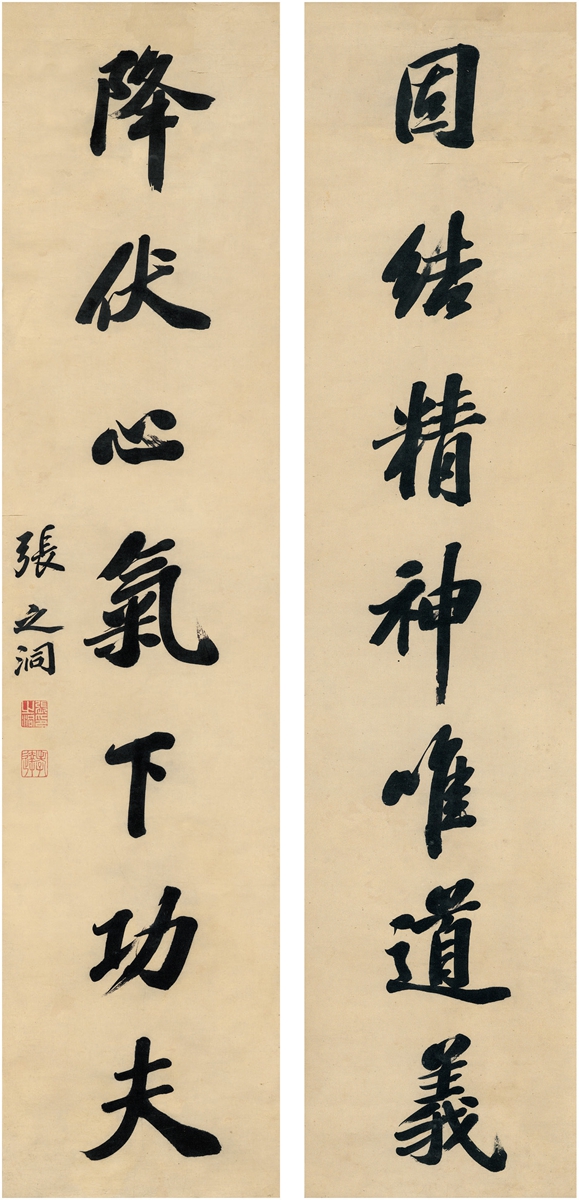 固结精神唯道義
降伏心氣下功夫
張之洞